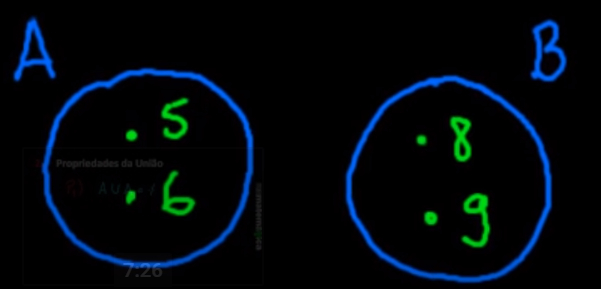 A B
. 5 . 8
Propriedades da União
. 6 . 9
7:26